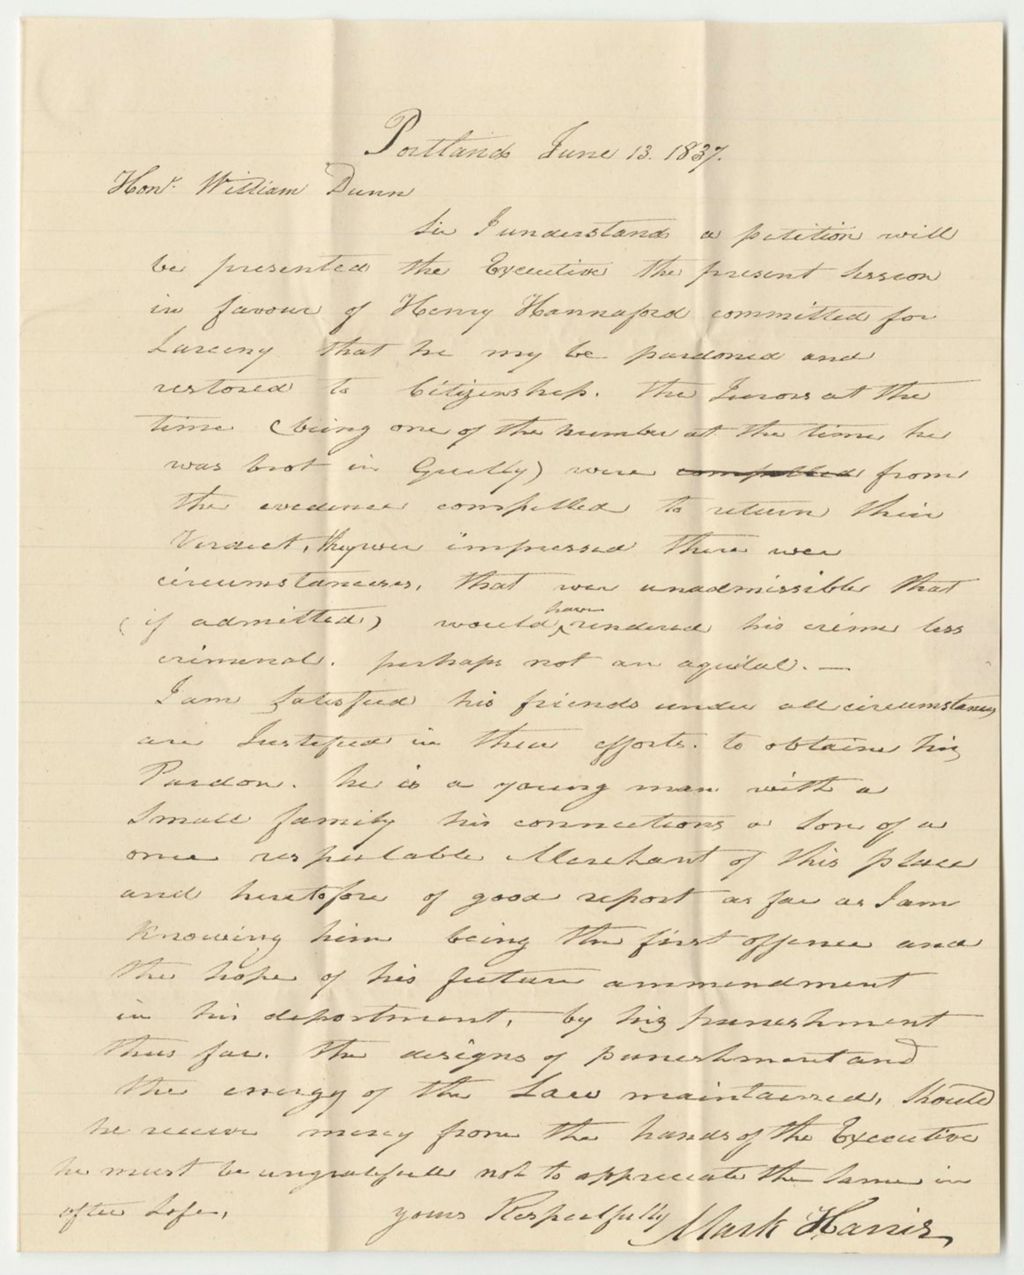 Portland June 13. 1837.
Honr. William Dunn
Sir I understand a petition will
be presented the Executive the present session
in favour of Henry Hannaford committed for
Larceny that he my be pardoned and
restored to Citizenship. the Jurors at the
time (being one of the number at the time he
was brot in Guilty) were compelled from
the evedence compelled to return thier
Verdict, they wer impressed there wer
circumstances, that wer unadmissible that
(if admitted) would have rendered his crime less
criminal. perhaps not an aquital. —
I am satisfied his friends under all circumstances
are Justified in their efforts. to obtaine his
Pardon. he is a young man with a
Small family his connections a Son of a
once respectable Merchant of this place
and heretofore of good report as far as I am
Knowing him being the first offence and
the hope of his future ammendment
in his deportment, by his punishment
thus far. the designs of punishment and
the energy of the Law maintained, Should
he receive mercy from the hands of the Executive
he must be ungratefull not to appreciate the same in
after Life, yours Respectfully Mark Harris